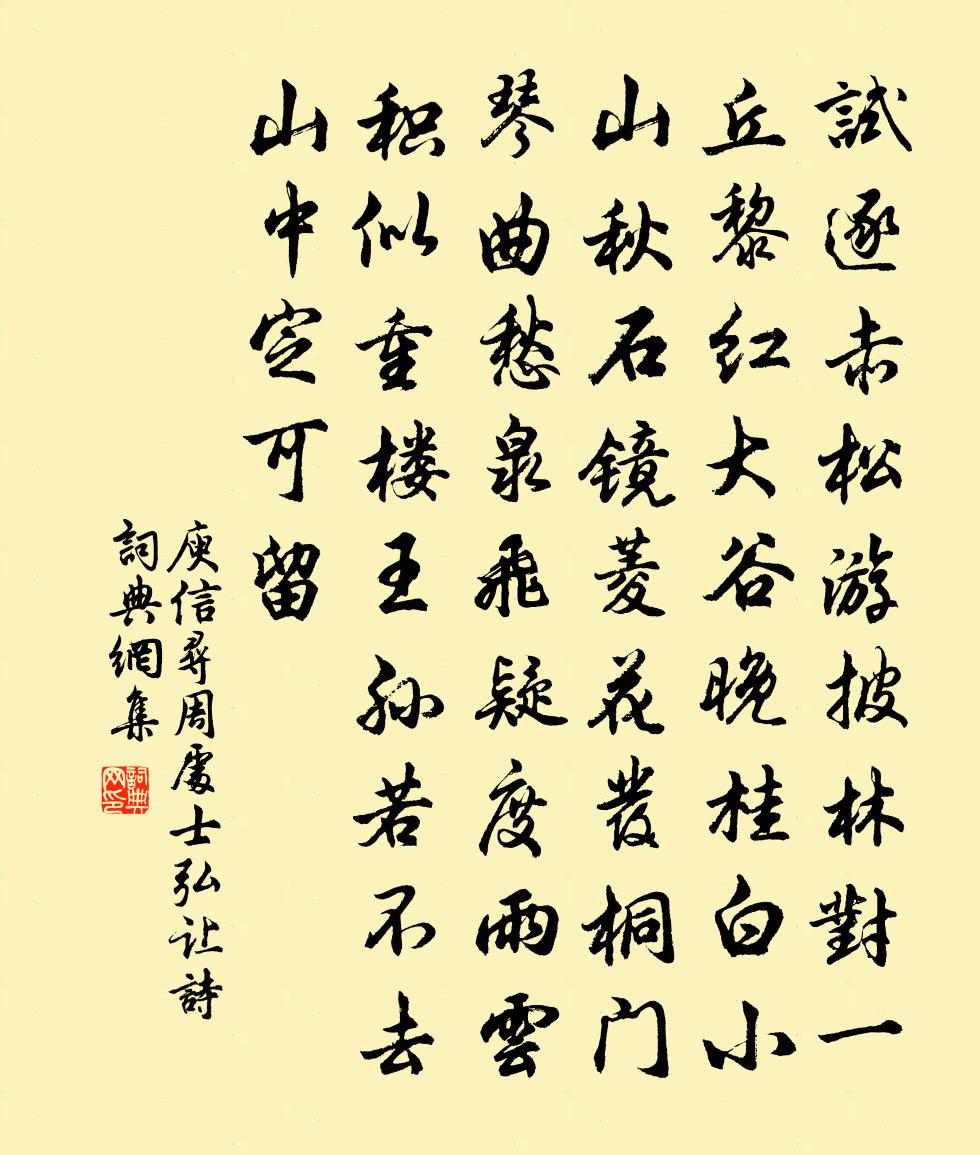 試逐赤松游披林對一
丘黎红大谷晚桂白小
山秋石镜菱花發桐门
琴曲愁泉飛疑度雨雲
积似重楼王孙若不去
山中定可留
庾信尋周處士弘让詩
詞典網集
詞典
网印